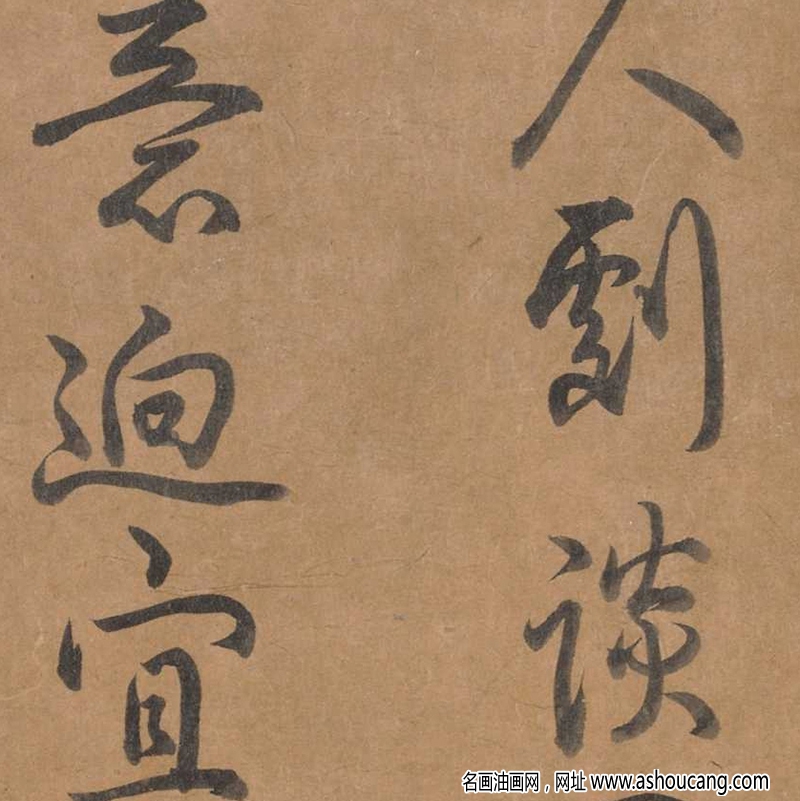 人劇談
迫宜
名画油画网，网址 www.ashoucang.com